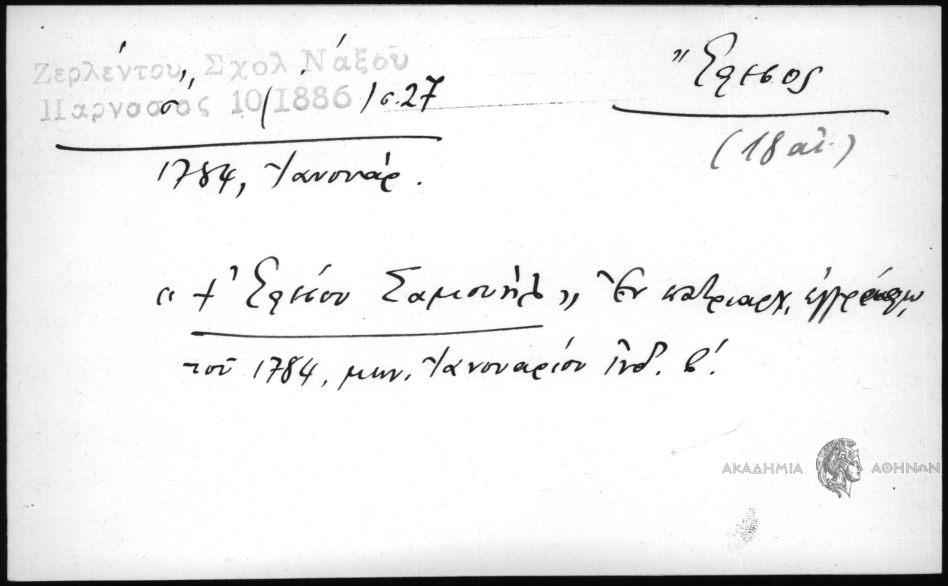 Ζερλέντου, Σχολ Νάξου
Παρνασσός 10 (1886) σ. 27
Ἔφεσος
(18 αἰ.)
1784, Ἰανουάρ.
« + Ἐφέσου Σαμουήλ » Ἐν πατριαρχ. ἐγγράφῳ,
τοῦ 1784, μην. Ἰανουαρίου ἰνδ. β΄.
ΑΚΑΔΗΜΙΑ ΑΘΗΝΩΝ